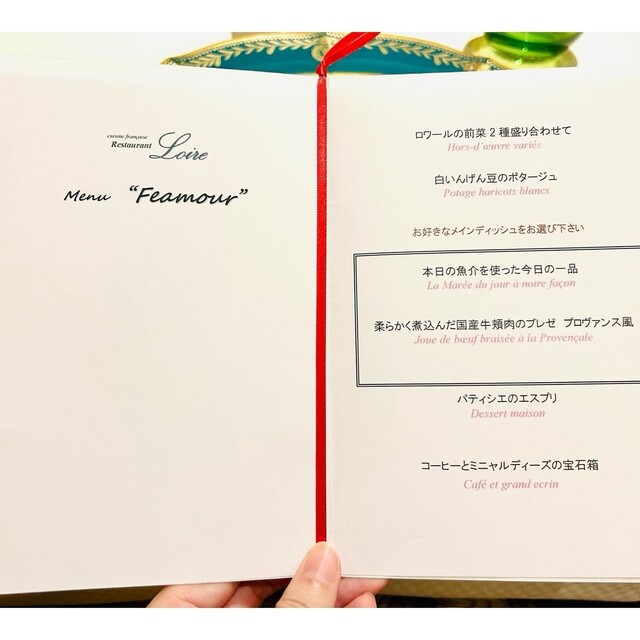 cuisine française
Restaurant Loire
Menu "Feamour"
ロワールの前菜2種盛り合わせて
Hors-d'œuvre variés
白いんげん豆のポタージュ
Potage haricots blancs
お好きなメインディッシュをお選び下さい
本日の魚介を使った今日の一品
La Marée du jour à notre façon
柔らかく煮込んだ国産牛頬肉のブレゼ プロヴァンス風
Joue de bœuf braisée à la Provençale
パティシエのエスプリ
Dessert maison
コーヒーとミニャルディーズの宝石箱
Café et grand ecrin